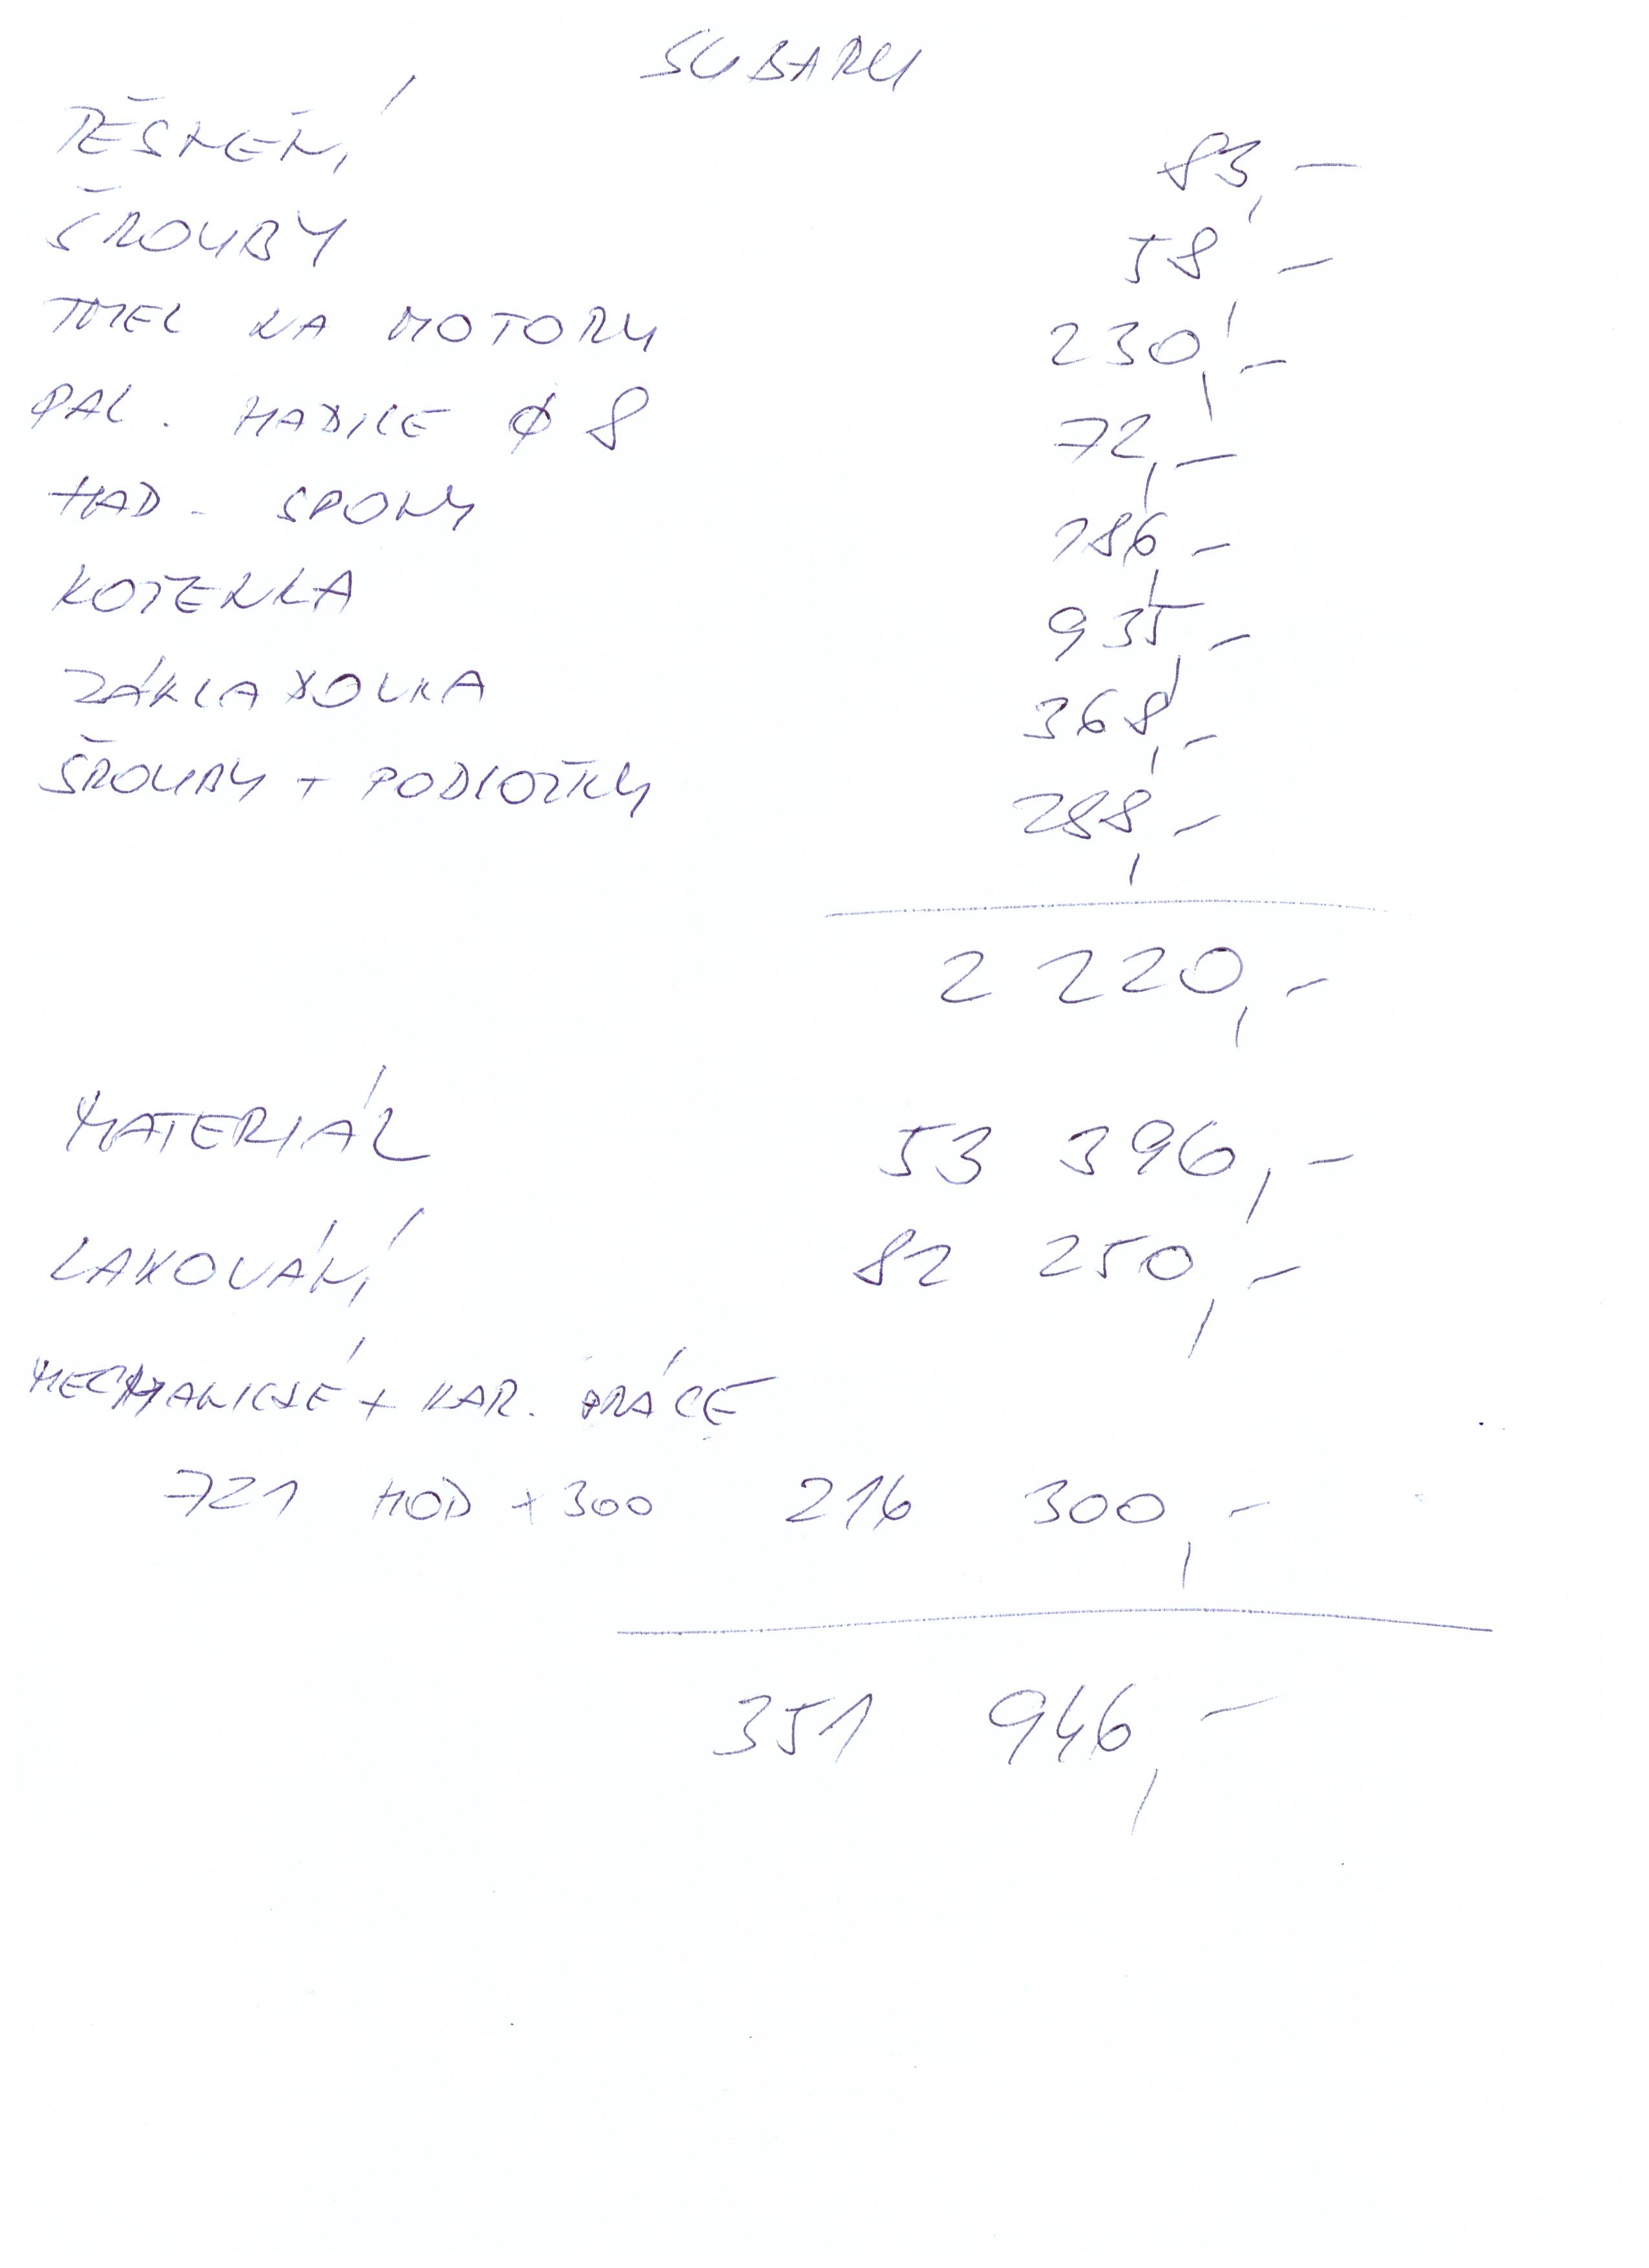 SUBARU
TĚSNĚNÍ 83,-
ŠROUBY 58,-
TMEL NA MOTORY 230,-
PAL. HADICE Ø 8 72,-
HAD. SPONY 186,-
KOTENKA 935,-
ZÁKLADOVKA 368,-
ŠROUBY + PODLOŽKY 288,-
2 220,-
MATERIÁL 53 396,-
LAKOVÁNÍ 82 250,-
MECHANICKÉ + KAR. PRÁCE
721 HOD x 300 216 300,-
351 946,-